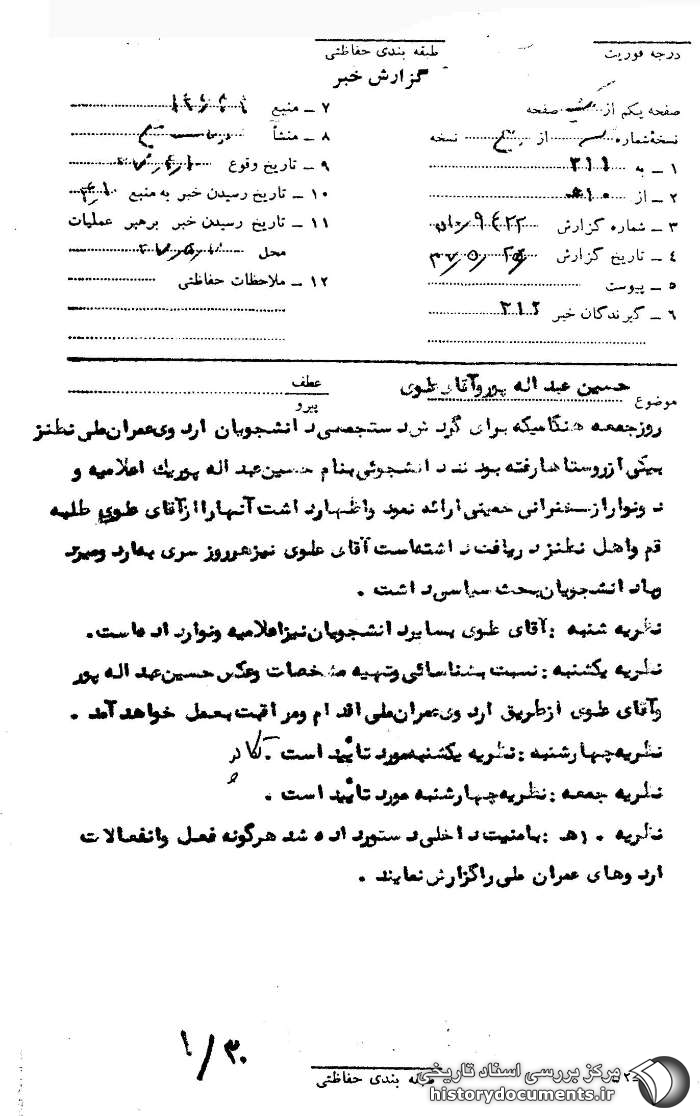 درجه فوریت
طبقه بندی حفاظتی
گزارش خبر
صفحه یکم از صفحه
نسخه شماره از نسخه
۱ ــ به ۳۱۱
۲ ــ از ۱۰ه
۳ ــ شماره گزارش ۹۴۲۲
۴ ــ تاریخ گزارش ۳۷/۵/۲۵
۵ ــ پیوست
۶ ــ گیرندگان خبر ۳۱۲
۷ ــ منبع
۸ ــ منشأ
۹ ــ تاریخ وقوع
۱۰ ــ تاریخ رسیدن خبر به منبع
۱۱ ــ تاریخ رسیدن خبر برهبر عملیات
محل
۱۲ ــ ملاحظات حفاظتی
موضوع حسین عبد اله پور وآقای علوی
عطف
پیرو
روزجمعه هنگامیکه برای گردش دستجمعی دانشجویان اردوی عمران ملی نطنز
بیکی ازروستاها رفته بودند دانشجوئی بنام حسین عبد اله پوریك اعلامیه و
دونوارازسخنرانی خمینی ارائه نمود واظهارداشت آنهارا ازآقای علوی طلبه
قم واهل نطنز دریافت داشته است آقای علوی نیزهرروز سری بمارد ومیزد
وبادانشجویان بحث سیاسی داشت .
نظریه شنبه : آقای علوی بسایردانشجویان نیزاعلامیه ونوارداده است.
نظریه یکشنبه : نسبت بشناسائی وتهیه مشخصات وعکس حسین عبد اله پور
وآقای علوی ازطریق اردوی عمران ملی اقدام ومراقبت بعمل خواهد آمد .
نظریه چهارشنبه : نظریه یکشنبه مورد تأیید است .
نظریه جمعه : نظریه چهارشنبه مورد تأیید است .
نظریه ۱۰هـ : بامنیت داخلی دستورداده شد هرگونه فعل وانفعالات
اردوهای عمران ملی راگزارش نمایند .
۱/۳۰
طبقه بندی حفاظتی
مرکز بررسی اسناد تاریخی
historydocuments.ir